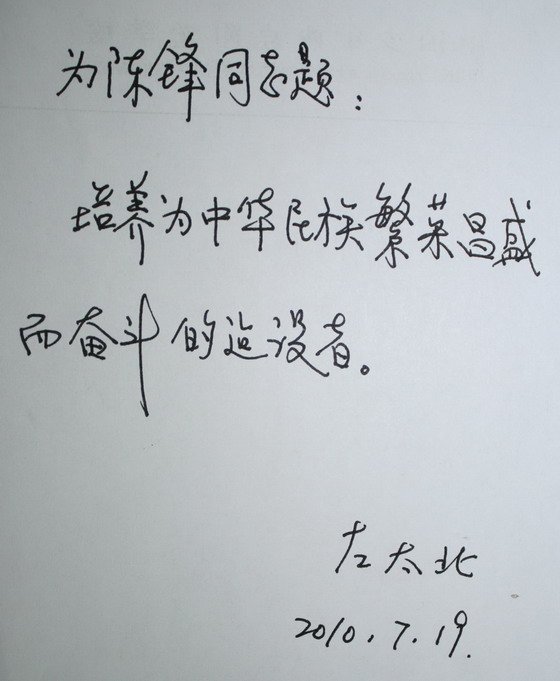 为陈锋同志题：
培养为中华民族繁荣昌盛
而奋斗的建设者。
左太北
2010.7.19.